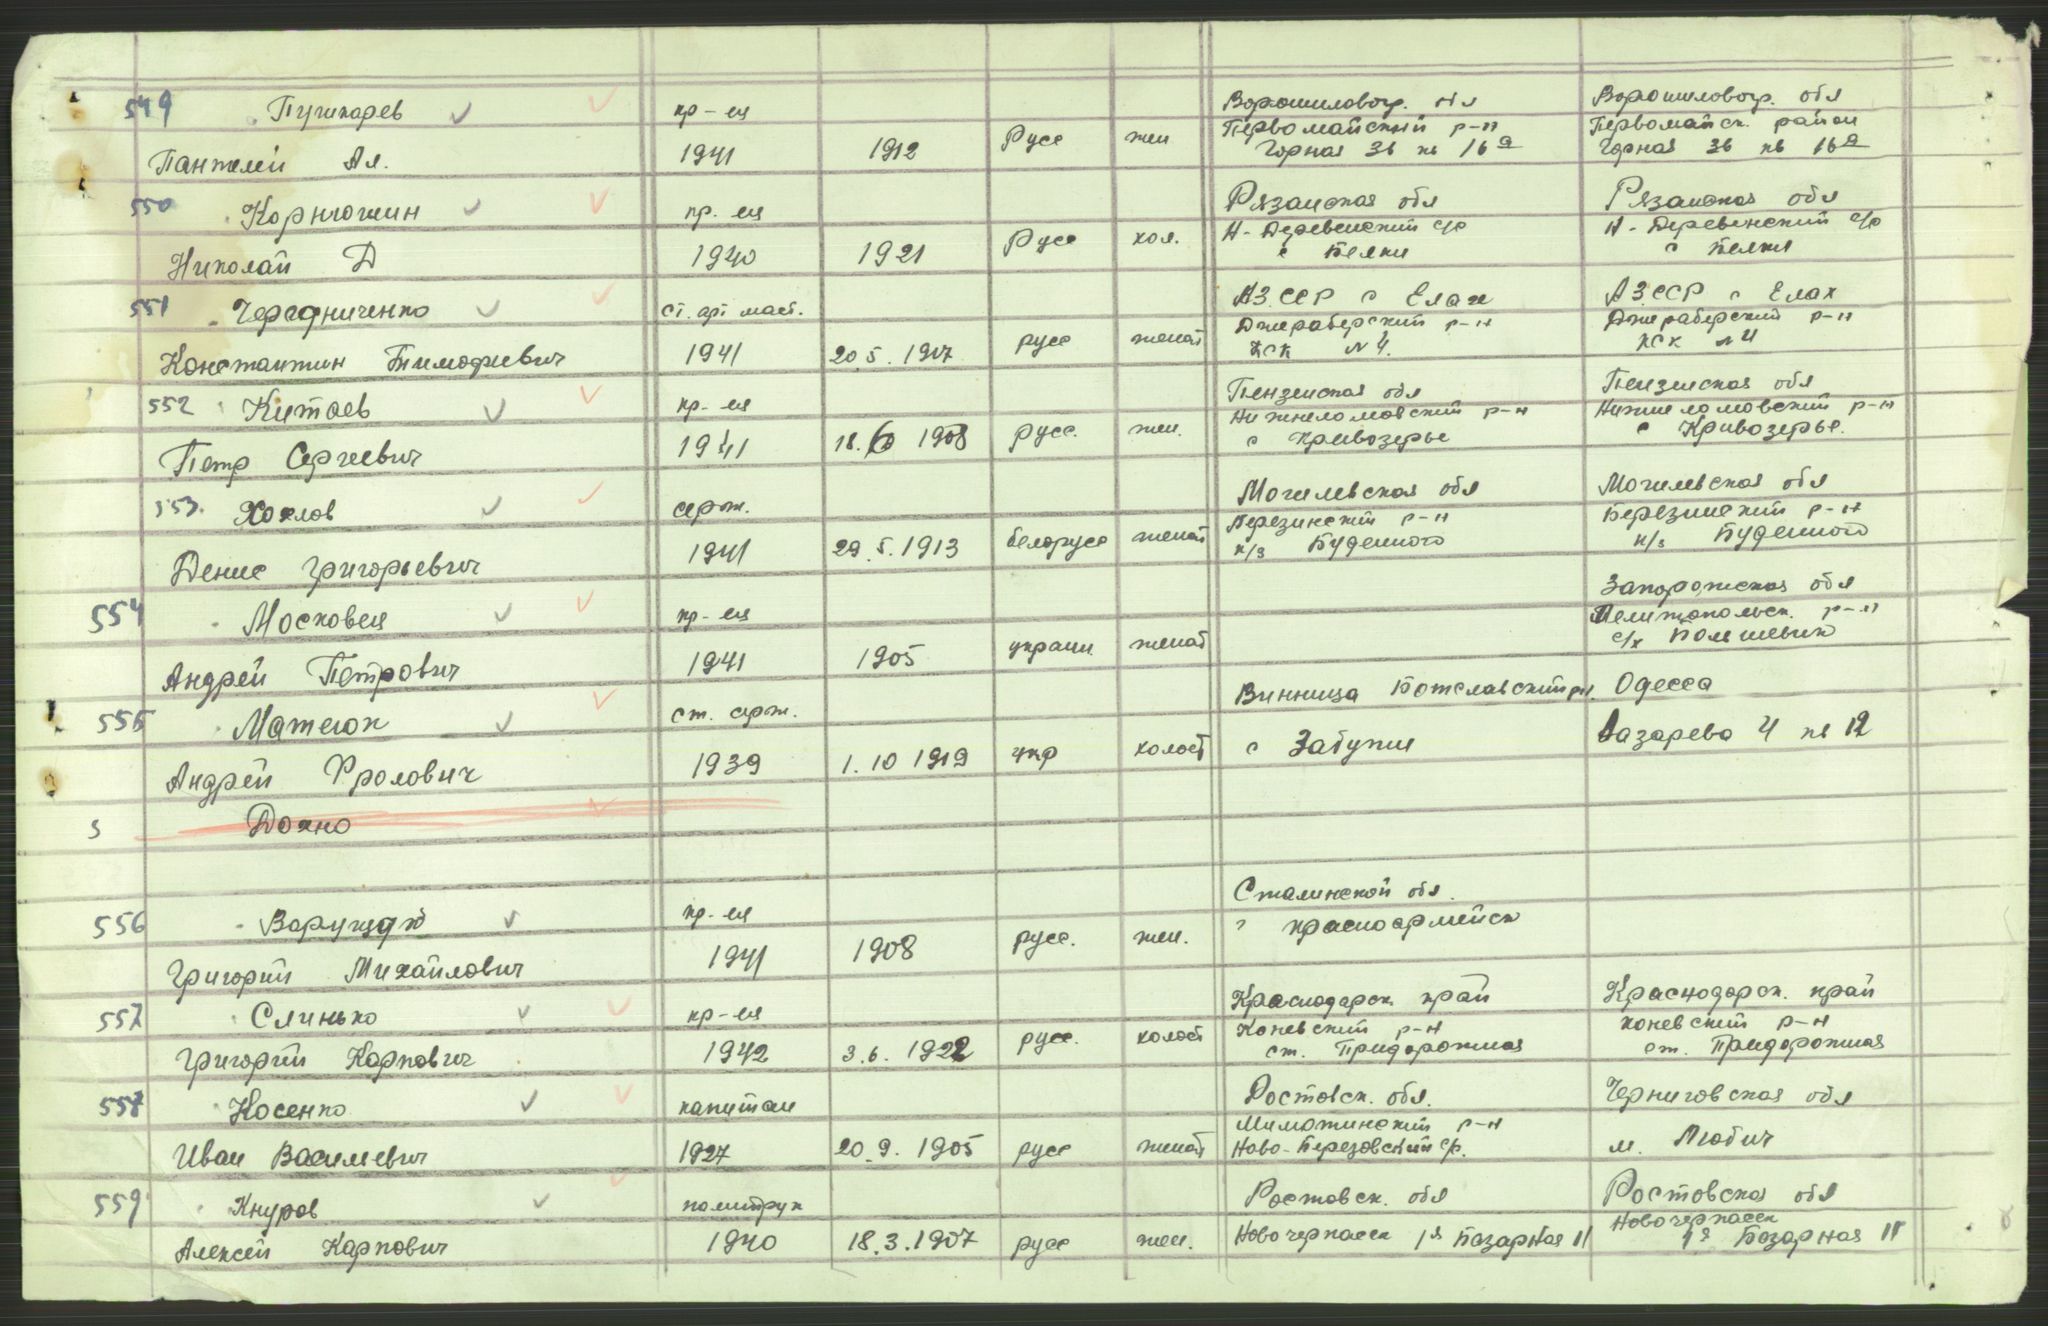 549 Пушкарев кр-ец Ворошиловогр. обл Ворошиловогр. обл
Первомайский р-н Первомайск. район
Пантелей Ал. 1941 1912 Русс жен Горная 36 кв 16а Горная 36 кв 16а
550 Корнюшин кр. ец Рязанская обл Рязанская обл
Н-Деревенский с/с Н-Деревенский с/с
Николай Д 1940 1921 Русс хол. с Белки с Белки
551 Чередниченко ст. арт маст. АЗ.ССР с Елах АЗ.ССР с Елах
Джераберский р-н Джераберский р-н
Константин Тимофеевич 1941 20.5.1907 русс женат КСК №4. КСК №4
552 Китаев кр-ец Пензенская обл Пензенская обл
Нижнеломовский р-н Нижнеломовский р-н
Петр Сергеевич 1941 18. 1908 русс. жен. с Кривозерье с Кривозерье.
553. Хохлов серж. Могилевская обл Могилевская обл
Березинский р-н Березинский р-н
Денис Григорьевич 1941 29.5.1913 белорусс женат к/з Буденного к/з Буденного
554 Московец кр-ец Запорожская обл
Мелитопольск. р-н
Андрей Петрович 1941 1905 украин женат с/х Большевик
555 Матеюк ст. серж. Винница р-н. Одесса
Андрей Фролович 1939 1.10 1919 укр холост с Забужи Лазарева 4 кв 12
Дохно
556 кр-ец Сталинской обл.
Григорий Михайлович 1941 1908 русс. жен. г Красноармейск
557 Слинько кр-ец Краснодарск край Краснодарск. край
Каневский р-н каневский р-н
Григорий Карпович 1942 3.6.1922 русс. холост ст. Придорожная ст. Придорожная
558 Косенко капитан Ростовск. обл. Черниговская обл
р-н
Иван Васильевич 1927 20.9.1905 русс женат Ново-Березовский с/с. м. Любич
559 Кнуров политрук Ростовск. обл Ростовская обл
Новочеркасск
Алексей Карпович 1940 18.3.1907 русс жен. Новочеркасск 1я Базарная 11 1я Базарная 11